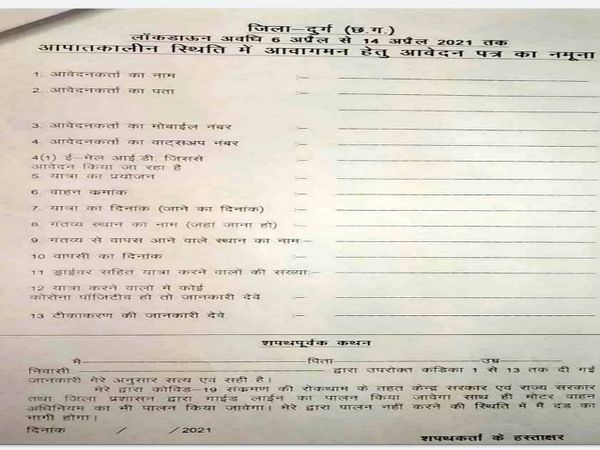 जिला–दुर्ग (छ.ग.)
लॉकडाऊन अवधि 6 अप्रैल से 14 अप्रैल 2021 तक
आपातकालीन स्थिति में आवागमन हेतु आवेदन पत्र का नमूना
1. आवेदनकर्ता का नाम :–
2. आवेदनकर्ता का पता :–
3. आवेदनकर्ता का मोबाईल नंबर :–
4. आवेदनकर्ता का वाट्सअप नंबर :–
4(1) ई–मेल आई.डी. जिससे
आवेदन किया जा रहा है
5. यात्रा का प्रयोजन :–
6. वाहन कमांक :–
7. यात्रा का दिनांक (जाने का दिनांक) :–
8. गंतव्य स्थान का नाम (जहां जाना हो) :–
9. गंतव्य से वापस आने वाले स्थान का नाम:–
10 वापसी का दिनांक :–
11 ड्राईवर सहित यात्रा करने वालो की संख्या:–
12 यात्रा करने वालो में कोई
कोरोना पॉजिटीव हो तो जानकारी देवें :–
13 टीकाकरण की जानकारी देवे :–
शपथपूर्वक कथन
मै————पिता————उम्र————
निवासी ———— द्वारा उपरोक्त कंडिका 1 से 13 तक दी गई
जानकारी मेरे अनुसार सत्य एवं सही है।
मेरे द्वारा कोविड–19 संकमण की रोकथाम के तहत केन्द्र सरकार एवं राज्य सरकार
तथा जिला प्रशासन द्वारा गाईड लाईन का पालन किया जावेगा साथ ही मोटर वाहन
अधिनियम का भी पालन किया जावेगा। मेरे द्वारा पालन नहीं करने की स्थिति में मैं दंड का
भागी होगा।
दिनांक / /2021
शपथकर्ता के हस्ताक्षर